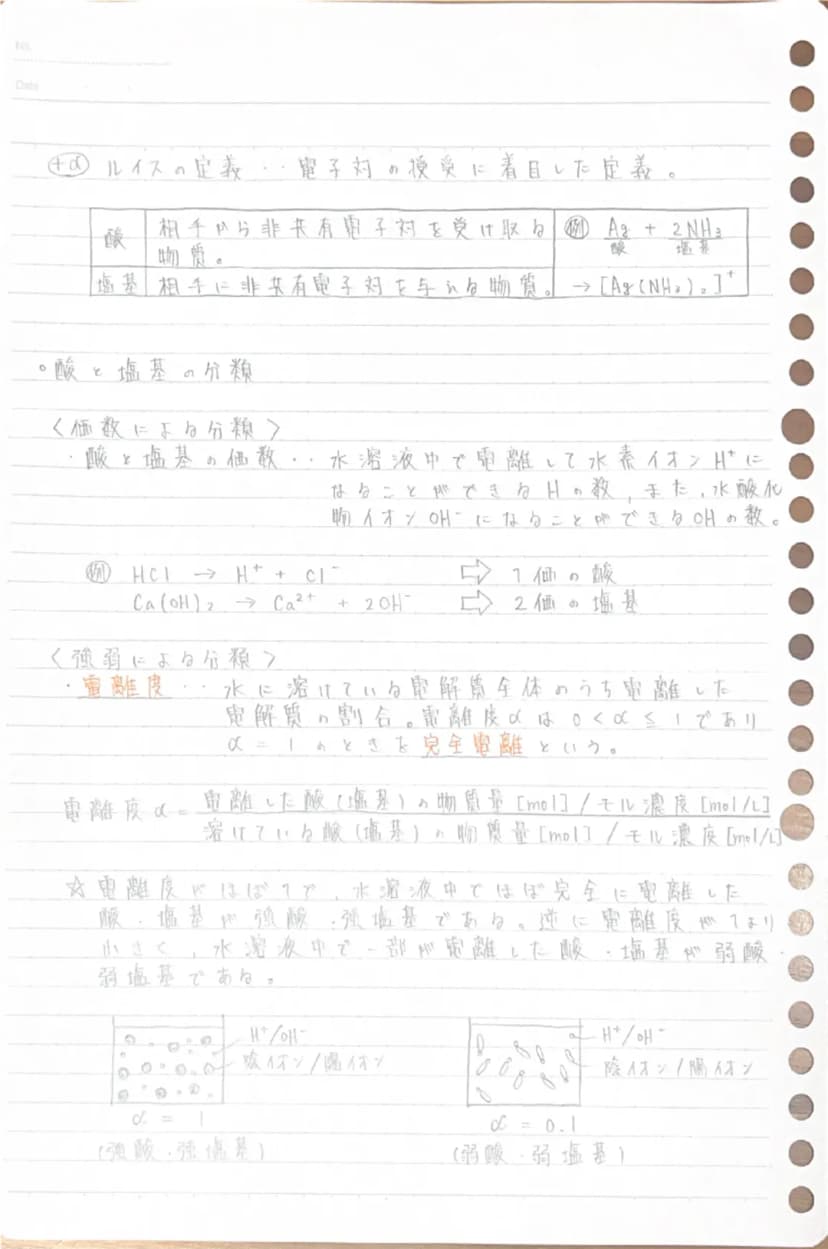 No.
Date
+α ルイスの定義‥電子対の授受に着目した定義。
酸 相手から非共有電子対を受け取る
物質。
塩基 相手に非共有電子対を与える物質。
例 Ag + 2NH₃
酸 塩基
→ [Ag(NH₃)₂]⁺
○酸と塩基の分類
〈価数による分類〉
・酸と塩基の価数‥水溶液中で電離して水素イオンH⁺に
なることができるHの数、また、水酸化
物イオンOH⁻になることができるOHの数。
例 HCl → H⁺ + Cl⁻ ⇨ 1価の酸
Ca(OH)₂ → Ca²⁺ + 2OH⁻ ⇨ 2価の塩基
〈強弱による分類〉
・電離度‥水に溶けている電解質全体のうち電離した
電解質の割合。電離度αは0<α≦1であり
α=1のときを完全電離という。
電離度α=電離した酸(塩基)の物質量[mol]/モル濃度[mol/L]
溶けている酸(塩基)の物質量[mol]/モル濃度[mol/L]
☆電離度がほぼ1で、水溶液中でほぼ完全に電離した
酸・塩基が強酸・強塩基である。逆に電離度が1より
小さく、水溶液中で一部が電離した酸・塩基が弱酸・
弱塩基である。
H⁺/OH⁻
陰イオン/陽イオン
α = 1
(強酸・強塩基)
H⁺/OH⁻
陰イオン/陽イオン
α = 0.1
(弱酸・弱塩基)